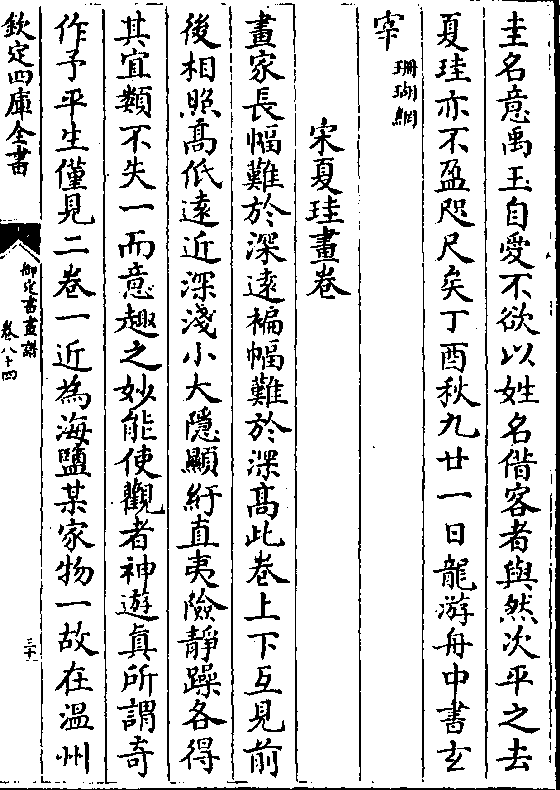 圭名意禹玉自愛不欲以姓名借客者與然次平之去
夏珪亦不盈咫尺矣丁酉秋九廿一日龍游舟中書玄
宰
珊瑚網
宋夏珪畫卷
畫家長幅難於深逺褊幅難於深髙此卷上下互見前
後相照髙低逺近深淺小大隱顯紆直夷險靜躁各得
其宜類不失一而意趣之妙能使觀者神遊眞所謂奇
作予平生僅見二卷一近為海鹽某家物一故在溫州
欽定四庫全書
御定書畫譜
卷八十四